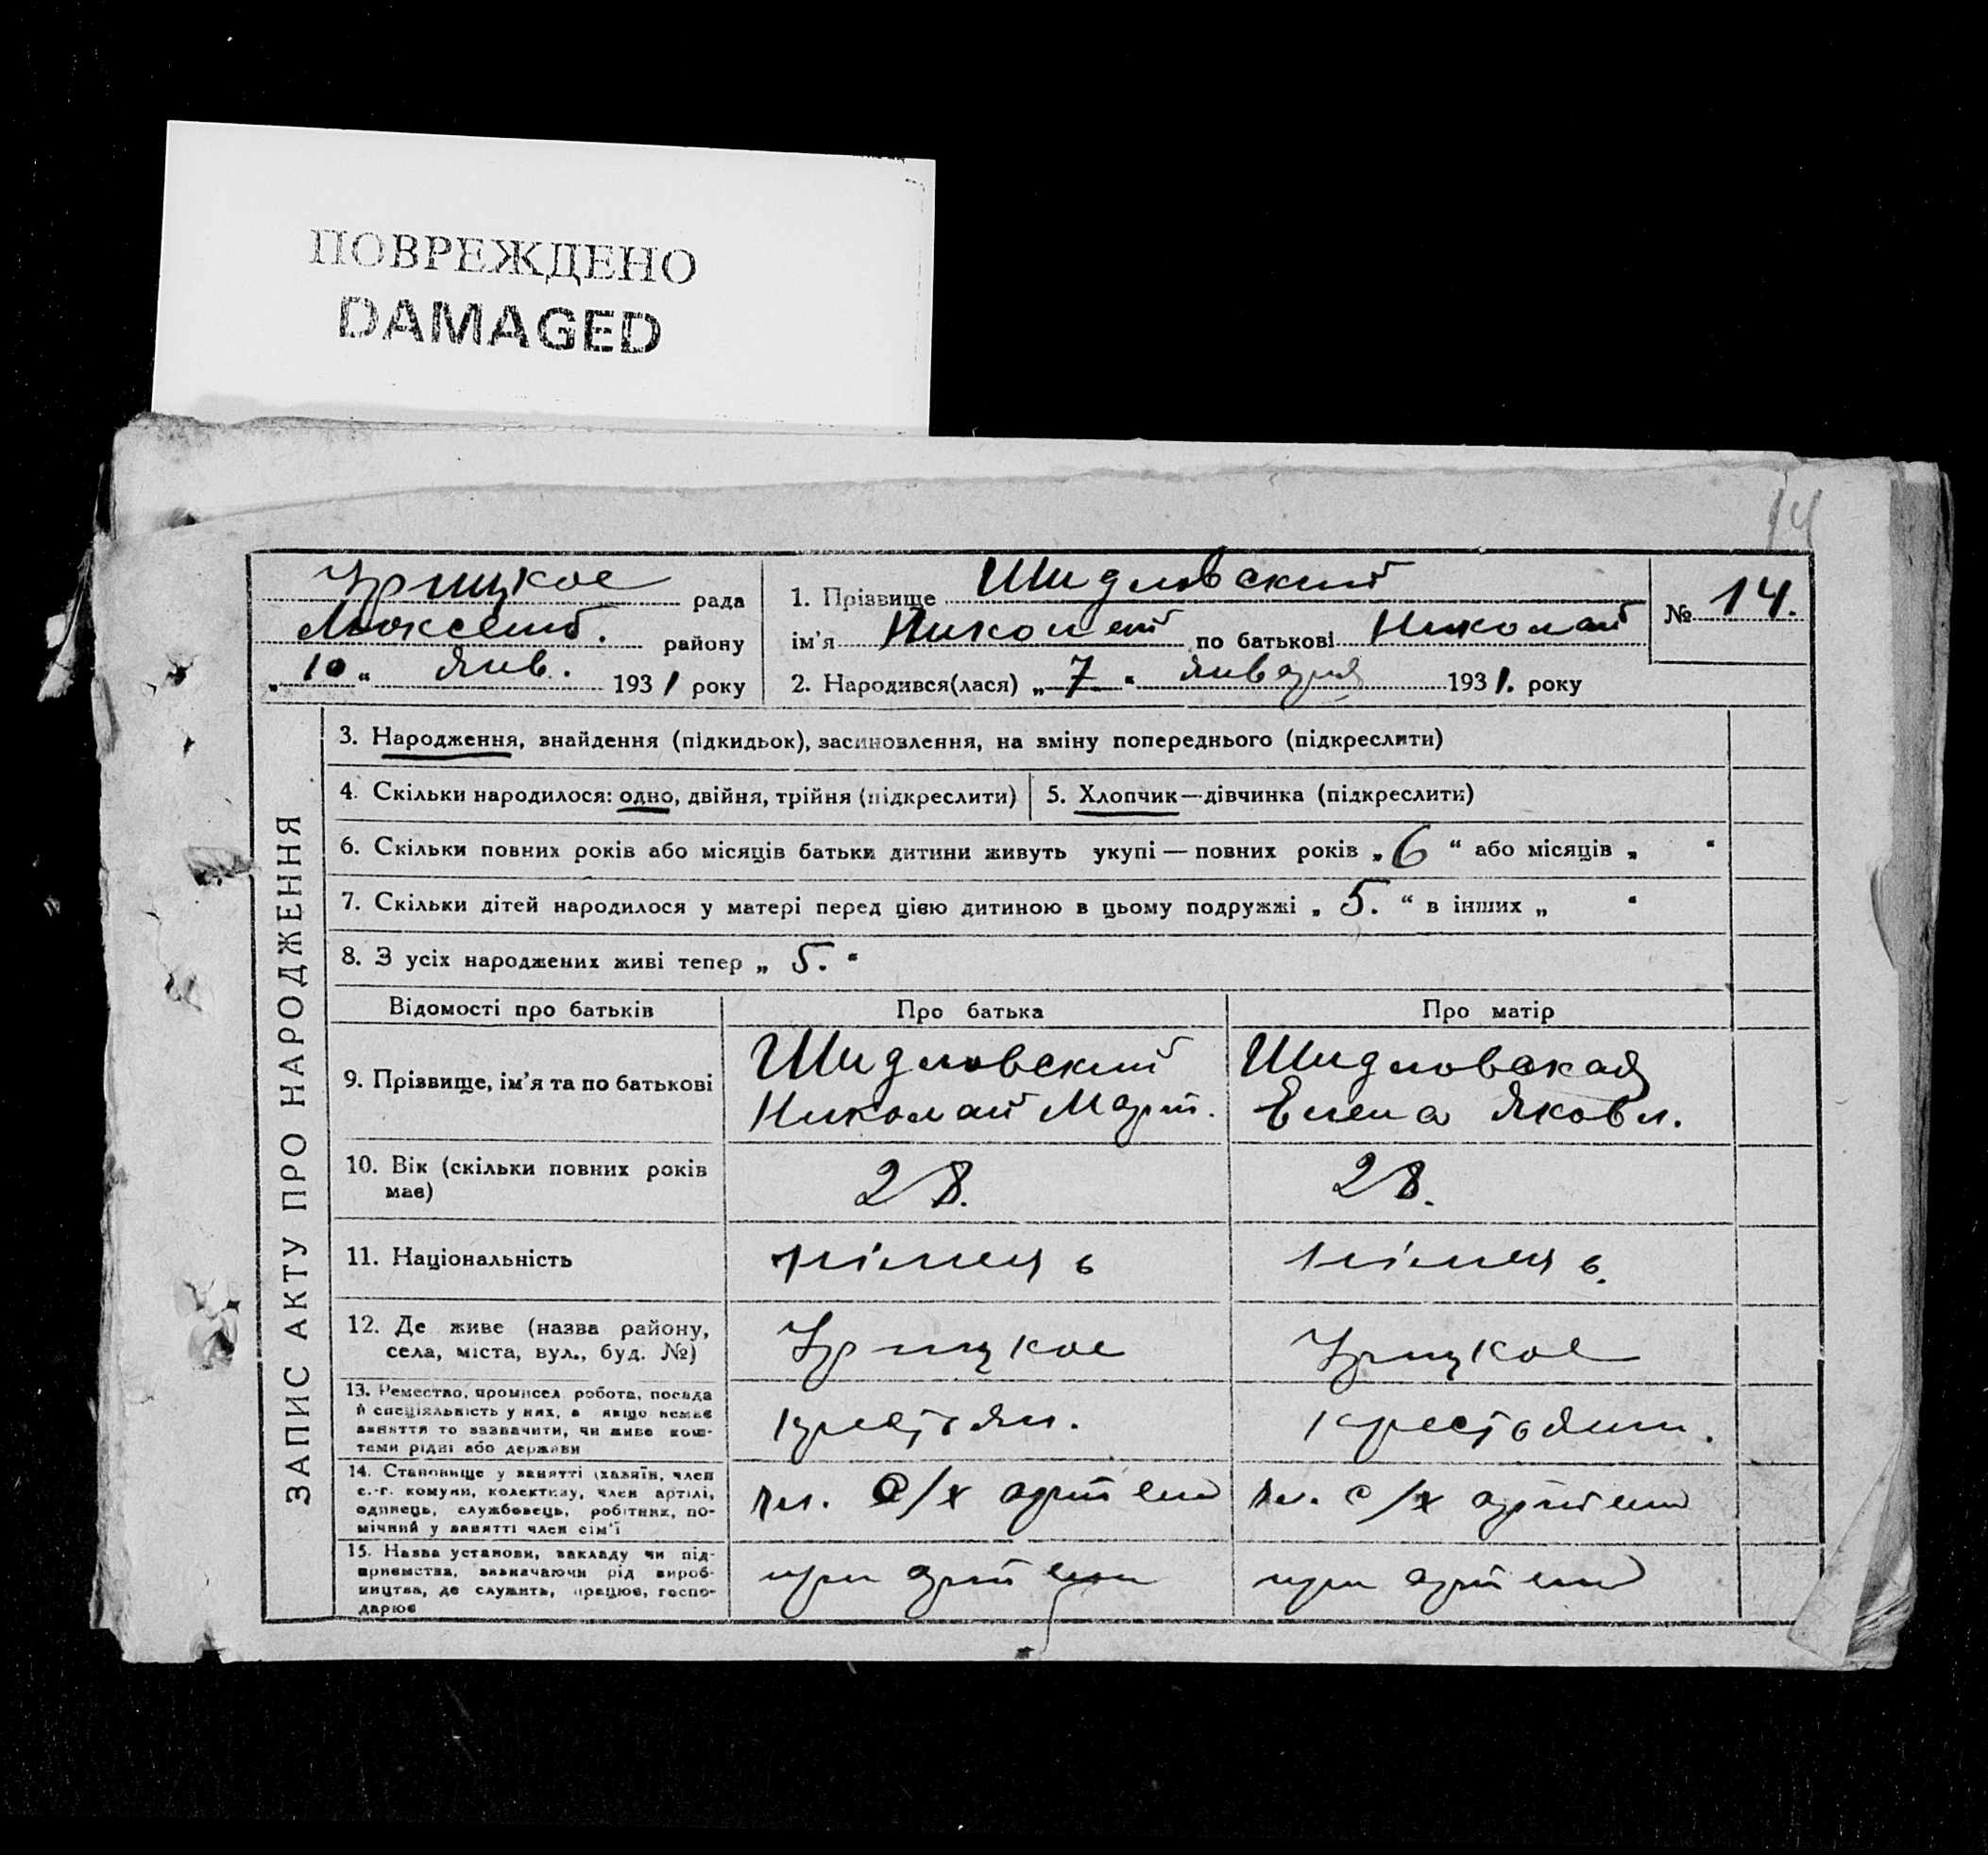 ПОВРЕЖДЕНО
DAMAGED
14
Урицкое рада
Люксемб. району
„10“ Янв. 1931 року
1. Прізвище Шидловский
ім'я Николай по батькові Николай
№ 14.
2. Народився(лася) „7“ Января 1931. року
ЗАПИС АКТУ ПРО НАРОДЖЕННЯ
3. Народження, знайдення (підкидьок), засиновлення, на зміну попереднього (підкреслити)
4. Скільки народилося: одно, двійня, трійня (підкреслити)
5. Хлопчик—дівчинка (підкреслити)
6. Скільки повних років або місяців батьки дитини живуть укупі — повних років „6“ або місяців „ “
7. Скільки дітей народилося у матері перед цією дитиною в цьому подружжі „5.“ в інших „ “
8. З усіх народжених живі тепер „5.“
Відомості про батьків
Про батька
Про матір
9. Прізвище, ім'я та по батькові
Шидловский
Николай Март.
Шидловская
Елена Яковл.
10. Вік (скільки повних років
має)
28.
28.
11. Національність
німець
німець.
12. Де живе (назва району,
села, міста, вул., буд. №)
Урицкое
Урицкое
13. Ремество, промисел робота, посада
й спеціяльність у них, а якщо немає
заняття то зазначити, чи живе кош-
тами рідні або держави
крестьян.
крестьянин.
14. Становище у занятті (хазяїн, член
с.-г. комуни, колективу, член артілі,
одинець, службовець, робітник, по-
мічний у занятті член сім'ї
чл. с/х артели
чл. с/х артели
15. Назва установи, закладу чи під-
приємства, зазначаючи рід вироб-
ництва, де служить, працює, госпо-
дарює
при артели
при артели